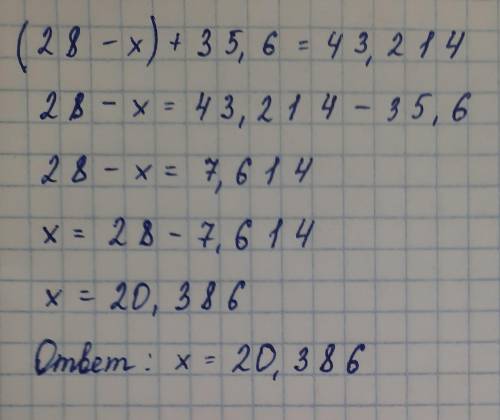 (28 - x) + 35,6 = 43,214
28 - x = 43,214 - 35,6
28 - x = 7,614
x = 28 - 7,614
x = 20,386
Ответ: x = 20,386